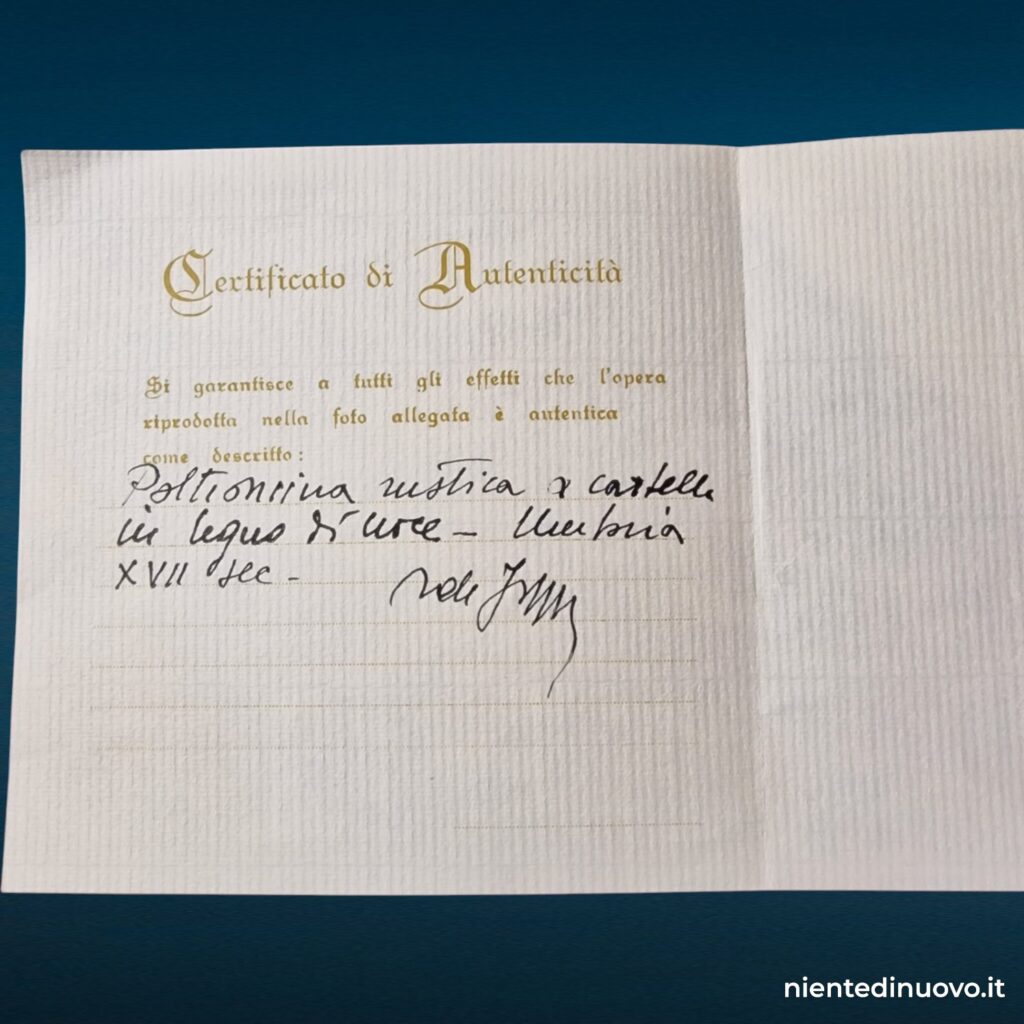 Certificato di Autenticità
Si garantisce a tutti gli effetti che l'opera
riprodotta nella foto allegata è autentica
come descritto:
Poltroncina rustica a cartelle
in legno di noce - Umbria
XVII sec -
nientedinuovo.it